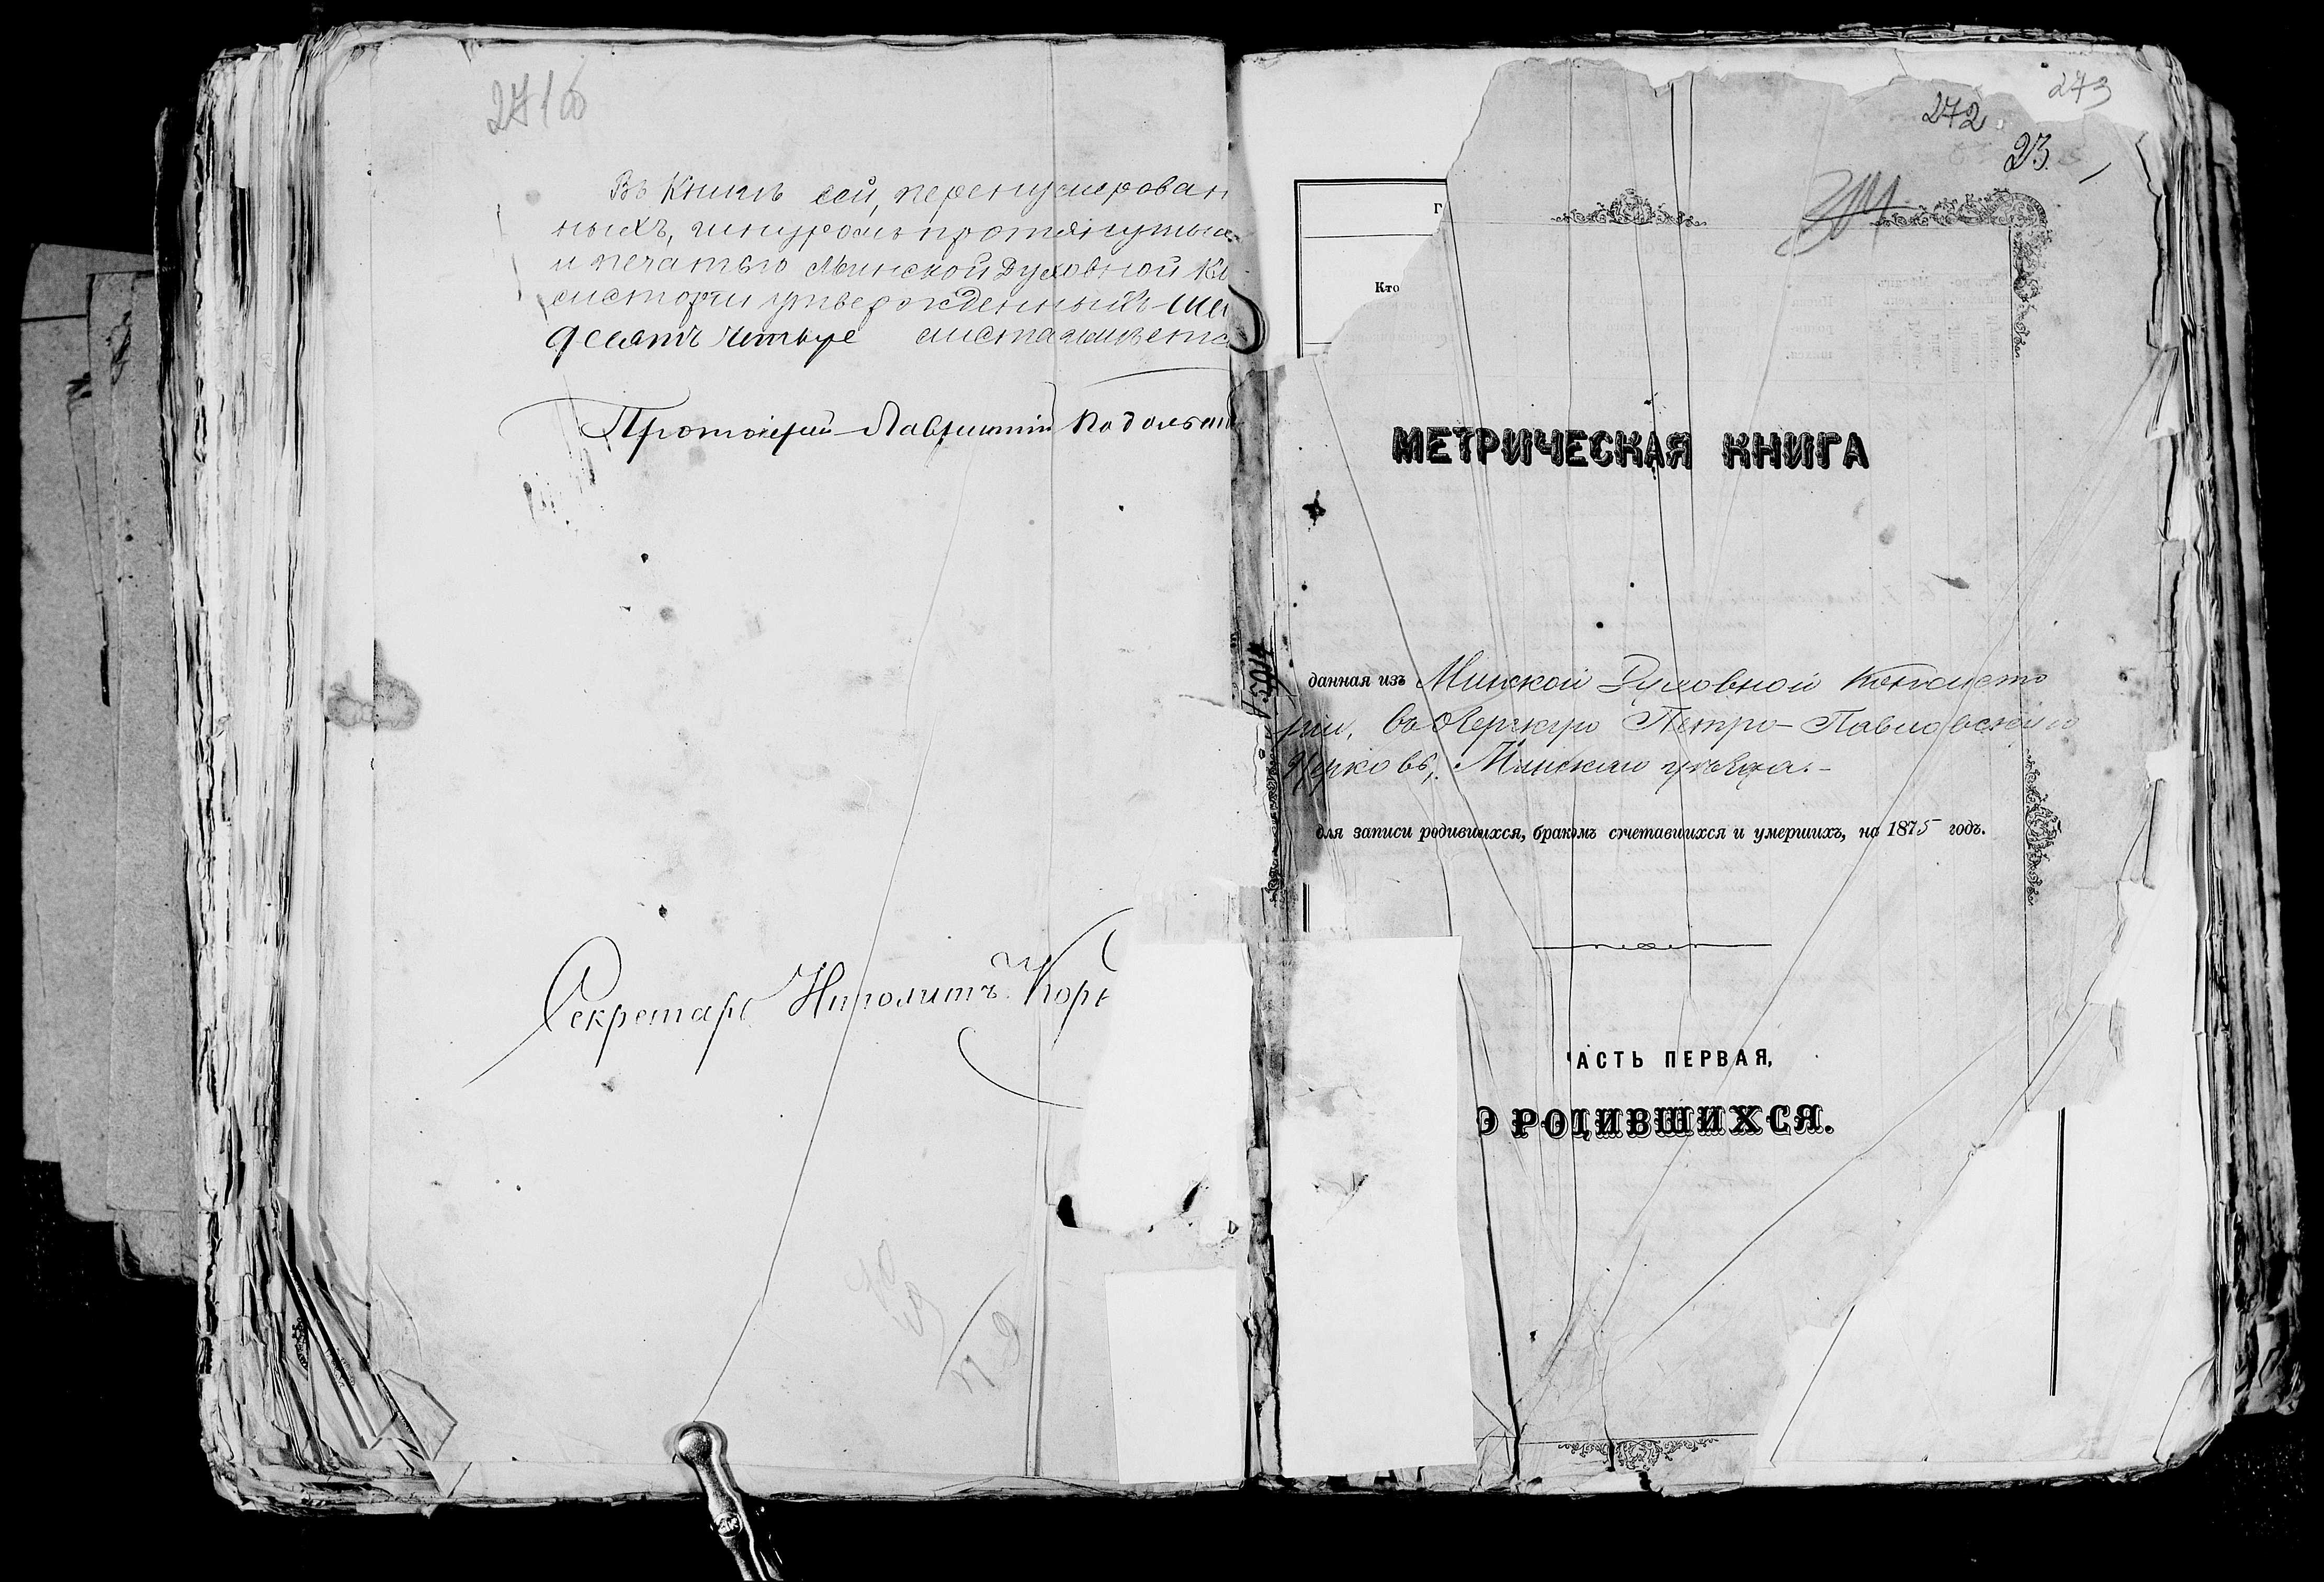 271 б
Въ Книгѣ сей, перенумерован
ныхъ, шнуромъ протянутыхъ
и печатью Минской Духовной Ко
систоріи утвержденныхъ ше
десятъ четыре листа имѣетс
Протоіерей Лаврентій Подольск
Секретарь Ипполитъ
273
272
23.
Г
Кто
МЕТРИЧЕСКАЯ КНИГА
данная изъ Минской Духовной Консисто
ріи, въ Петро-Павловскую
Церковь, Минскаго уѣзда.
для записи родившихся, бракомъ сочетавшихся и умершихъ, на 1875 годъ.
АСТЬ ПЕРВАЯ,
О РОДИВШИХСЯ.